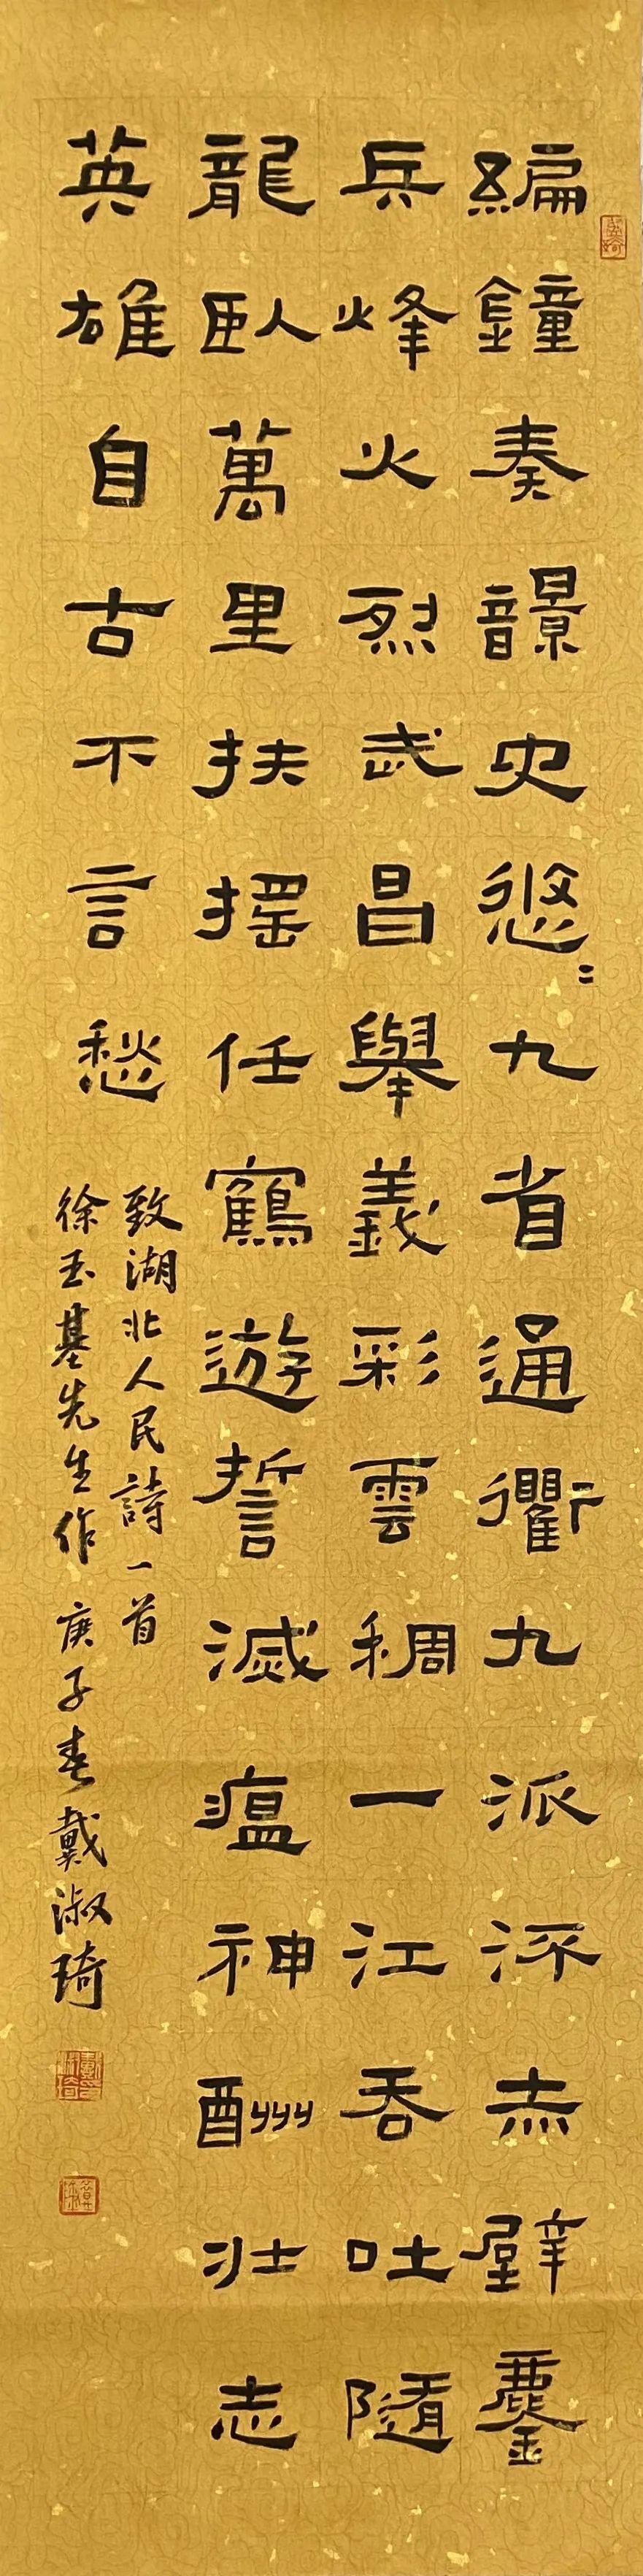 編鐘奏韻史悠〻九省通衢九派流赤壁鏖
兵烽火烈武昌舉義彩雲稠一江吞吐隨
龍臥萬里扶搖任鶴遊誓滅瘟神酬壯志
英雄自古不言愁
致湖北人民詩一首
徐玉基先生作 庚子春戴淑琦